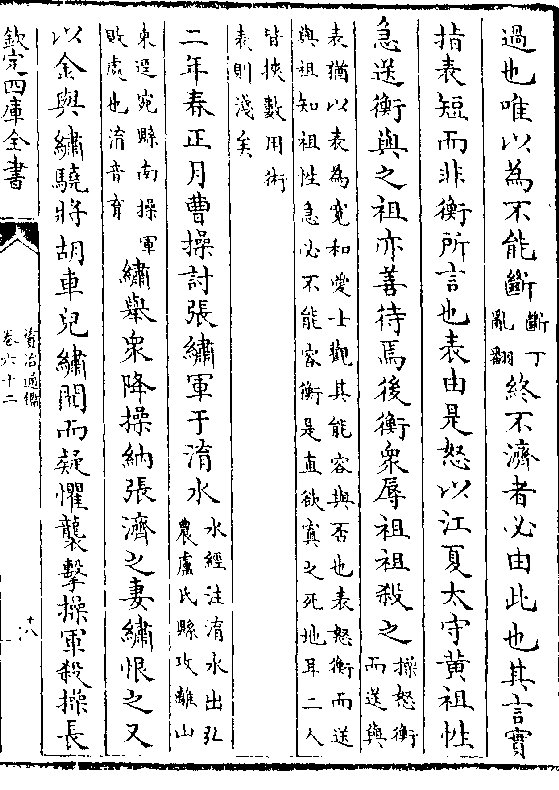 過也唯以為不能斷斷丁亂翻終不濟者必由此也其言實
指表短而非衡所言也表由是怒以江夏太守黄祖性
急送衡與之祖亦善待焉後衡衆辱祖祖殺之操怒衡而送與
表猶以表為寛和愛士觀其能容與否也表怒衡而送
與祖知祖性急必不能容衡是直欲寘之死地耳二人
皆挾數用術
表則淺矣
二年春正月曹操討張繡軍于淯水水經注淯水出弘農盧氏縣攻離山
東逕宛縣南操軍敗處也淯音育繡舉衆降操納張濟之妻繡恨之又
以金與繡驍將胡車兒繡聞而疑懼襲擊操軍殺操長
欽定四庫全書
資治通鑑
卷六十二
十八